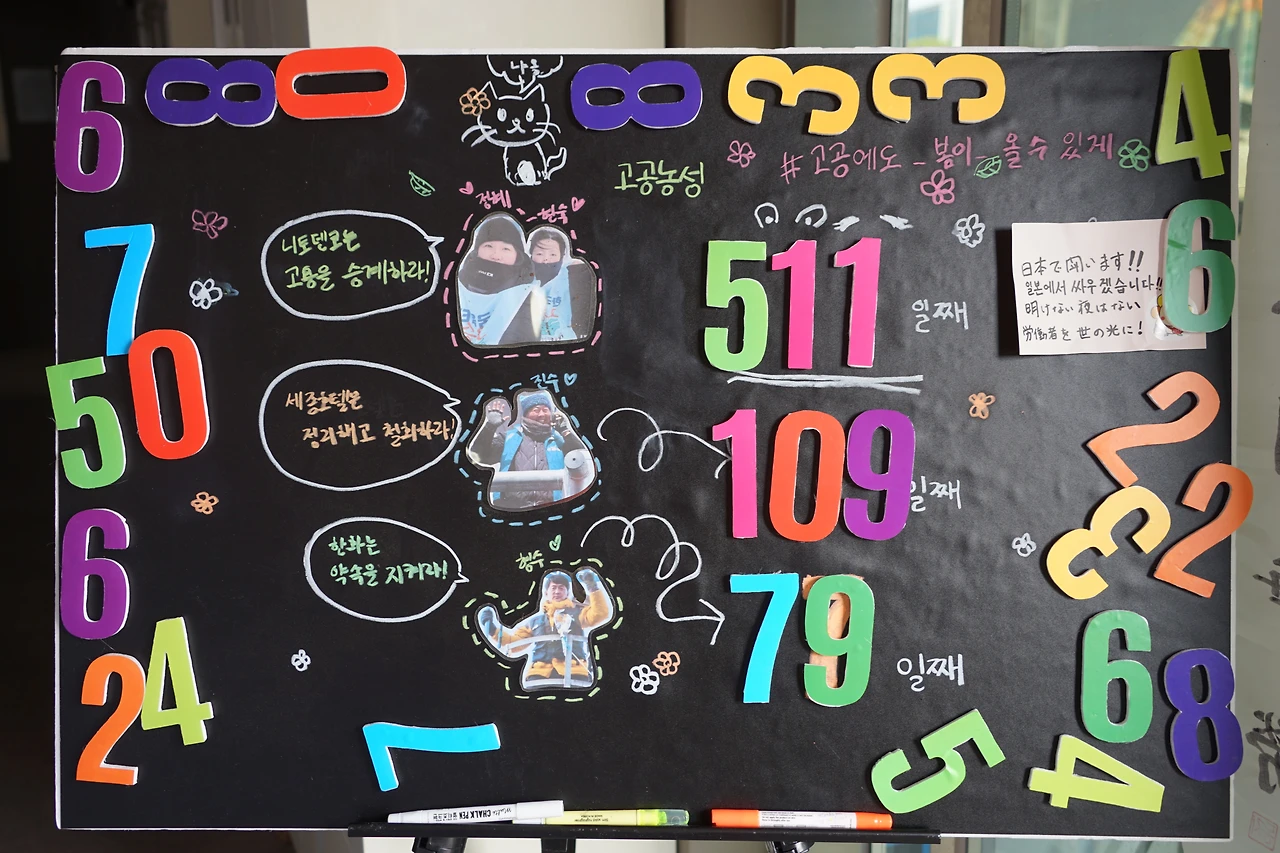 6 8 0 8 3 3 4
나을
고공농성
#고공에도_봄이_올수 있게
정혜
현숙
니토덴코는
고용을 승계하라!
511 일째
日本で闘います!!
일본에서 싸우겠습니다!!
明けない夜はない
労働者を世の光に!
6
7
5 0
진수
세종호텔은
정리해고 철회하라!
109 일째
2
2
3
6
형수
한화는
약속을 지켜라!
79 일째
6
8
2 4
7
5
4
CHALK PEN